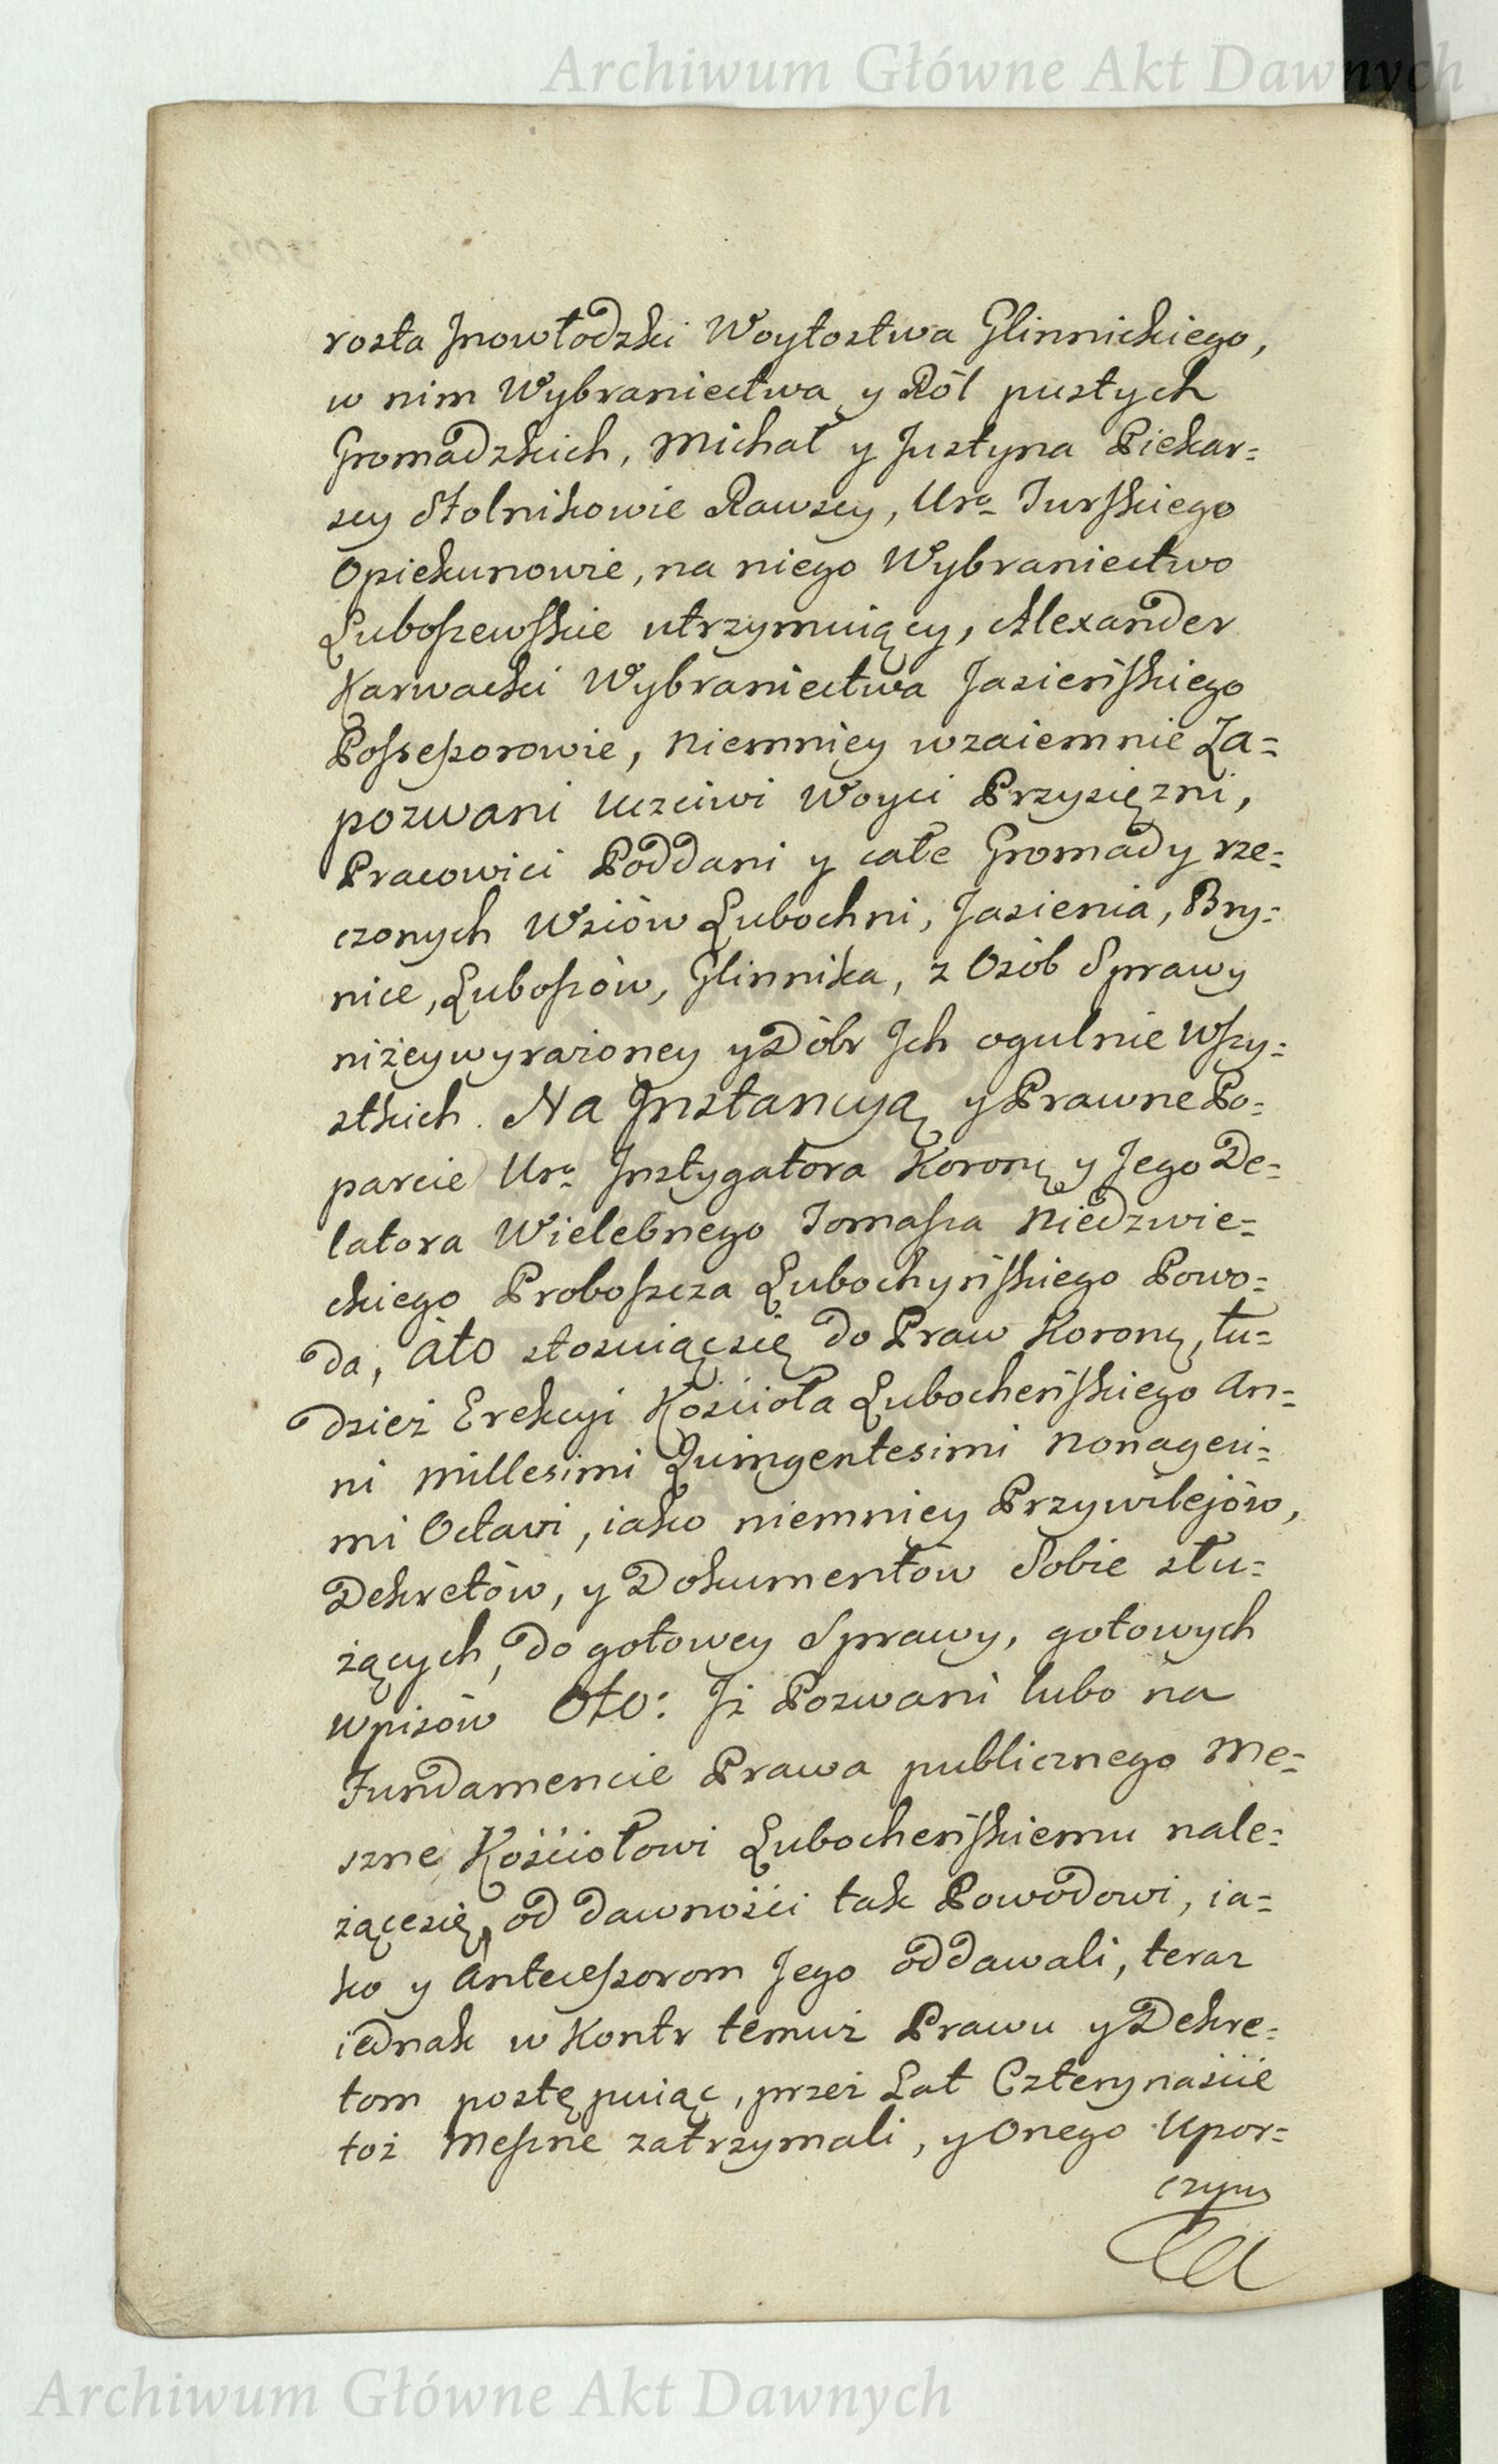 Archiwum Główne Akt Dawnych
rosta Jnowłodzki Woytostwa Glinnickiego,
w nim Wybraniectwa y Ról pustych
Gromadzkich, Michał y Justyna Piekar=
scy Stolnikowie Rawscy, Uro Turskiego
Opiekunowie, na niego Wybraniectwo
Luboszewskie utrzymuiący, Alexander
Karwacki Wybraniectwa Jasieńskiego
Possessorowie, niemniey wzaiemnie Za=
pozwani Uczciwi Woyci Przysięzni,
Pracowici Poddani y całe Gromady rze=
czonych Wsiów Lubochni, Jasienia, Bry=
nice, Luboszów, Glinnika, z Osób Sprawy
niżeywyrażoney y Dóbr Jch ogulnie Wszy=
stkich. Na Jnstancyą y Prawne Po=
parcie Uro Jnstygatora Korony y Jego De=
latora Wielebnego Tomasza Niedzwie=
ckiego Proboszcza Lubochyńskiego Powo=
da, Ato stosuiąc się do Praw Korony, tu=
dzież Erekcyi Kościoła Lubocheńskiego An=
ni Millesimi Quingentesimi Nonagesi=
mi Octavi, iako niemniey Przywilejów,
Dekretów, y Dokumentów Sobie słu=
żących, do gotowey Sprawy, gotowych
wpisów Oto: Jż Pozwani lubo na
Fundamencie Prawa publicznego Me=
szne Kościołowi Lubocheńskiemu nale=
żące się, od dawności tak Powodowi, ia=
ko y Antecessorom Jego oddawali, teraz
iednak w Kontr temuż Prawu y Dekre=
tom postępuiąc, przez Lat Czternaście
toż Meszne zatrzymali, y Onego Upor=
czyw
Archiwum Główne Akt Dawnych